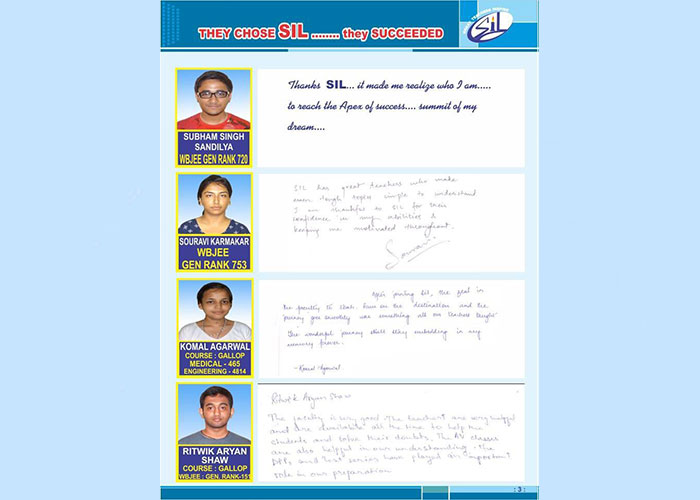 THEY CHOSE SIL ........ they SUCCEEDED
SiL
SUBHAM SINGH
SANDILYA
WBJEE GEN RANK 720
Thanks SIL... it made me realize who I am.....
to reach the Apex of success.... summit of my
dream....
SOURAVI KARMAKAR
WBJEE
GEN RANK 753
SIL has great teachers who make
even tough topics simple to understand
I am thankful to SIL for their
confidence in my abilities &
keeping me motivated throughout.
Souravi
KOMAL AGARWAL
COURSE : GALLOP
MEDICAL - 465
ENGINEERING - 4814
After joining SIL, the
the faculty to the destination and the
journey goes smoothly was something all our teachers taught
The wonderful journey shall stay embedding in my
memory forever.
- Komal Agarwal
RITWIK ARYAN
SHAW
COURSE : GALLOP
WBJEE : GEN. RANK-151
Ritwik Aryan Shaw
The faculty is very good. The teachers are very helpful
and are available all the time to help the
students and solve their doubts. The AV classes
are also helpful in our understanding. The
DPPs and test series have played an important
role in our preparation
: 3 :